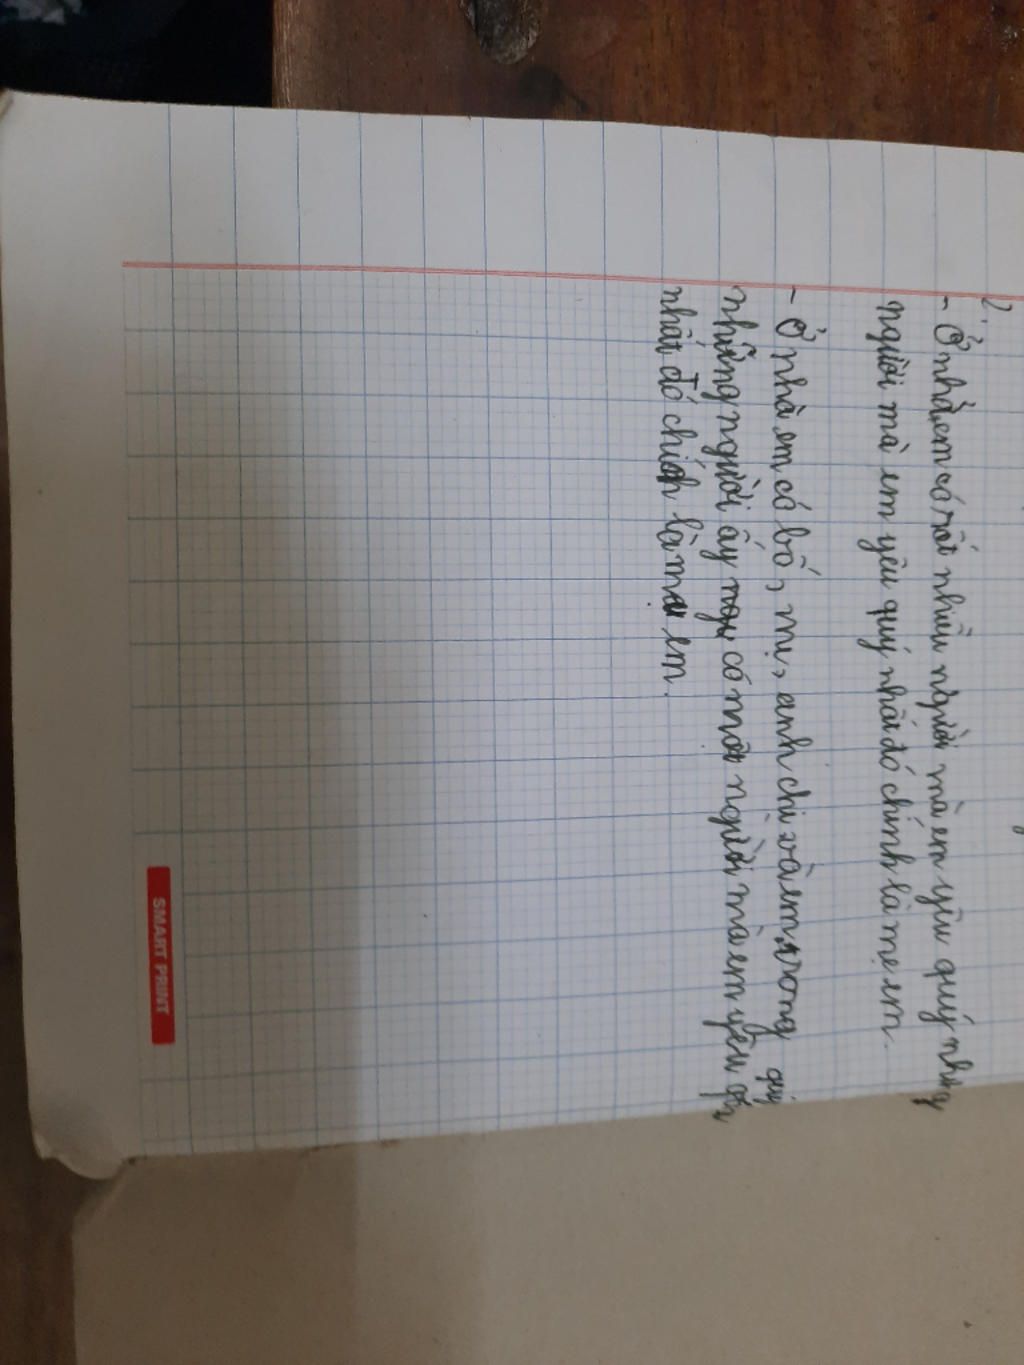 2.
- Ở nhà, em có rất nhiều người mà em yêu quý nhưng
người mà em yêu quý nhất đó chính là mẹ em.
- Ở nhà em có bố, mẹ, anh chị và em trong
những người ấy có một người mà em yêu quý
nhất đó chính là mẹ em.
SMART PRINT